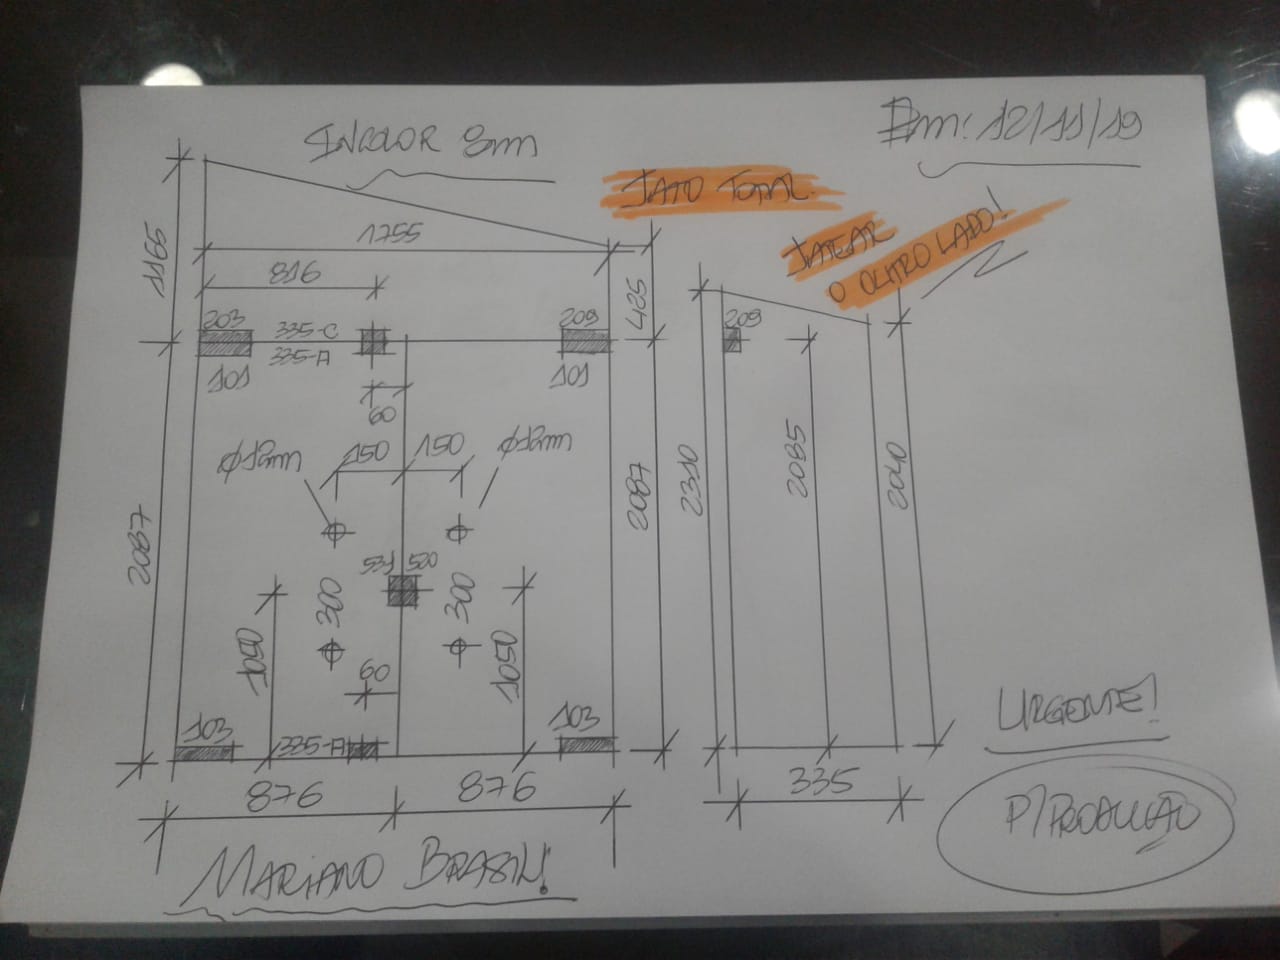 INCOLOR 8mm
Em: 12/11/19
JATO TOTAL.
JATEAR
O OUTRO LADO!
1755
816
1165
425
203
335-C
209
335-A
101
101
209
60
150
150
Ø12mm
Ø12mm
2087
2087
2310
2085
2040
531
520
300
300
1050
1050
60
103
335-A
103
876
876
335
URGENTE!
P/PRODUÇÃO
MARIANO BRASIL!